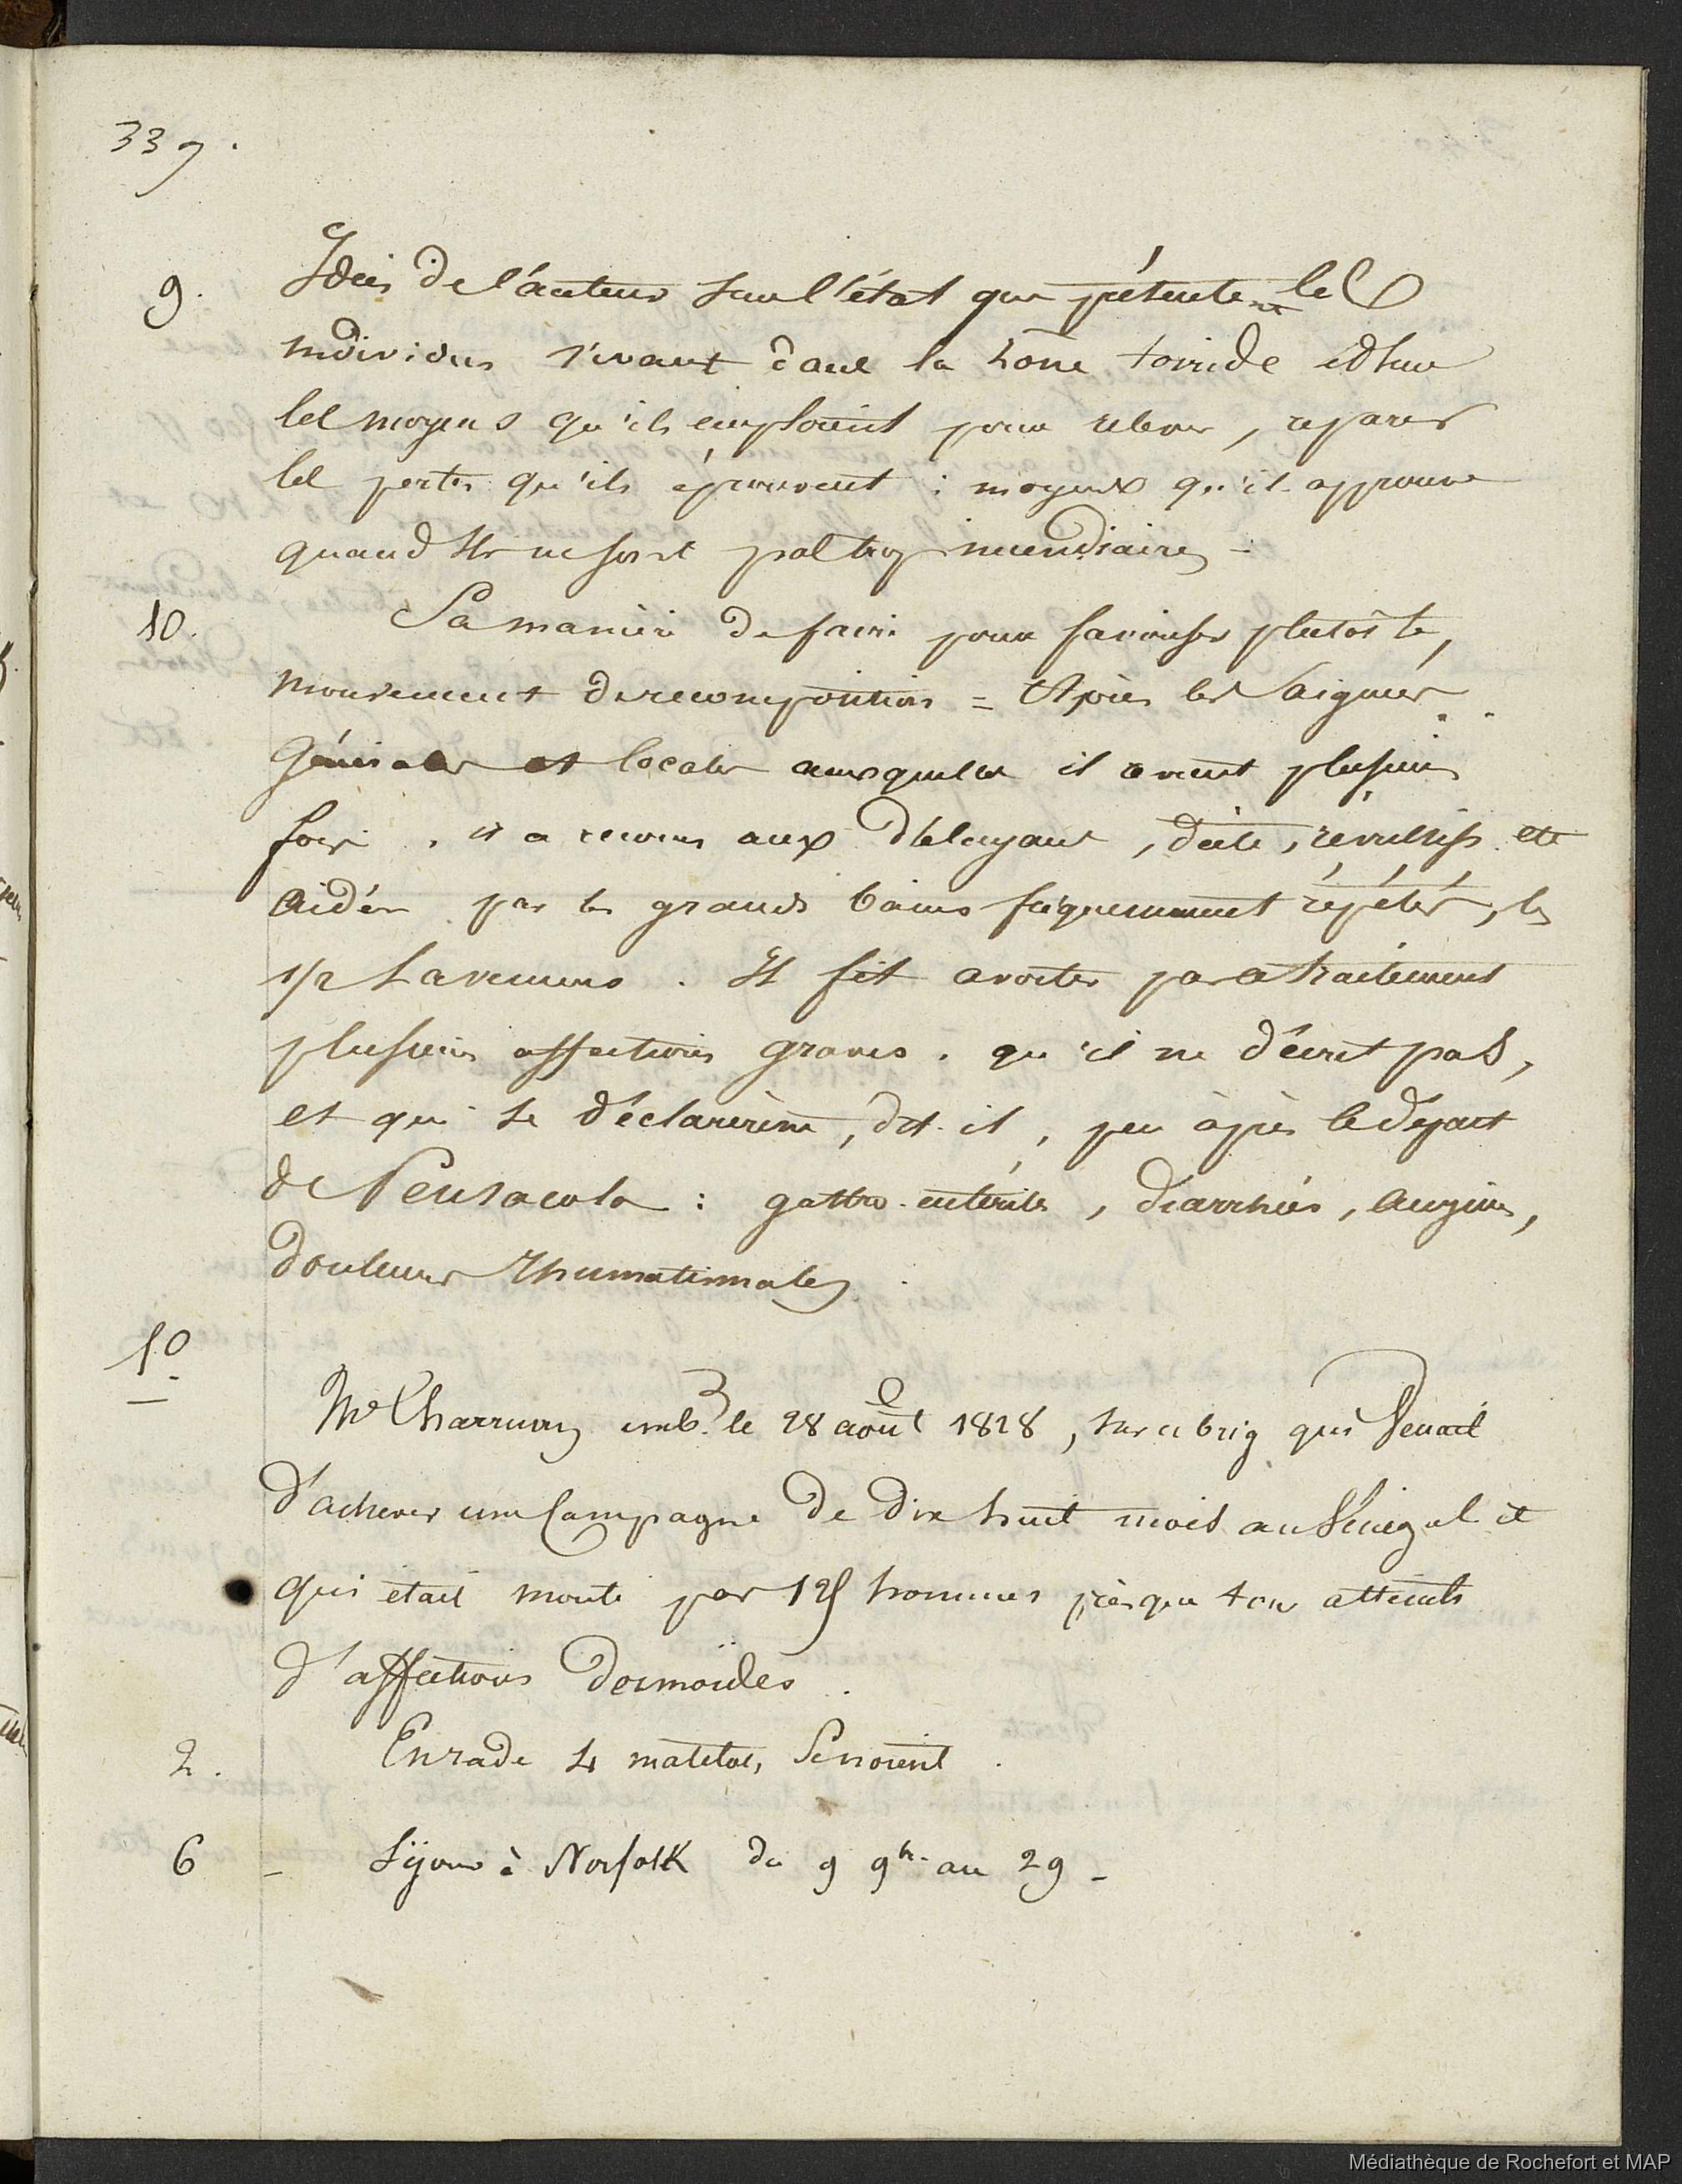 339.
9. Idées de l'auteur sur l'état que présentent les
individus vivant dans la zone torride et sur
les moyens qu'ils emploient pour relever, réparer
les pertes qu'ils éprouvent : moyens qu'il approuve
quand ils ne sont pas trop incendiaires -
10. Sa manière de faire pour favoriser plutôt le,
mouvement de recomposition = Après les saignées
générales et locales auxquelles il revient plusieurs
fois . il a recours aux délayans, diète, révulsifs etc
aidés par les grands bains fréquemment répétés, les
1/2 lavemens . Il fit avorter par ce traitement
plusieurs affections graves . qu'il ne décrit pas,
et qui se déclarèrent, dit-il, peu après le départ
de Pensacola : gastro-entérites, diarrhées, angines,
douleurs rhumatismales.
1º. Mr Charruau emb. le 28 août 1828, sur ce brig qui venait
d'achever une campagne de dix huit mois au Sénégal et
qui était monté par 125 hommes presque tous atteints
d'affections dermoïdes.
2. En rade 4 matelots,
6 - Séjour à Norfolk du 9 9bre au 29 -
Médiathèque de Rochefort et MAP